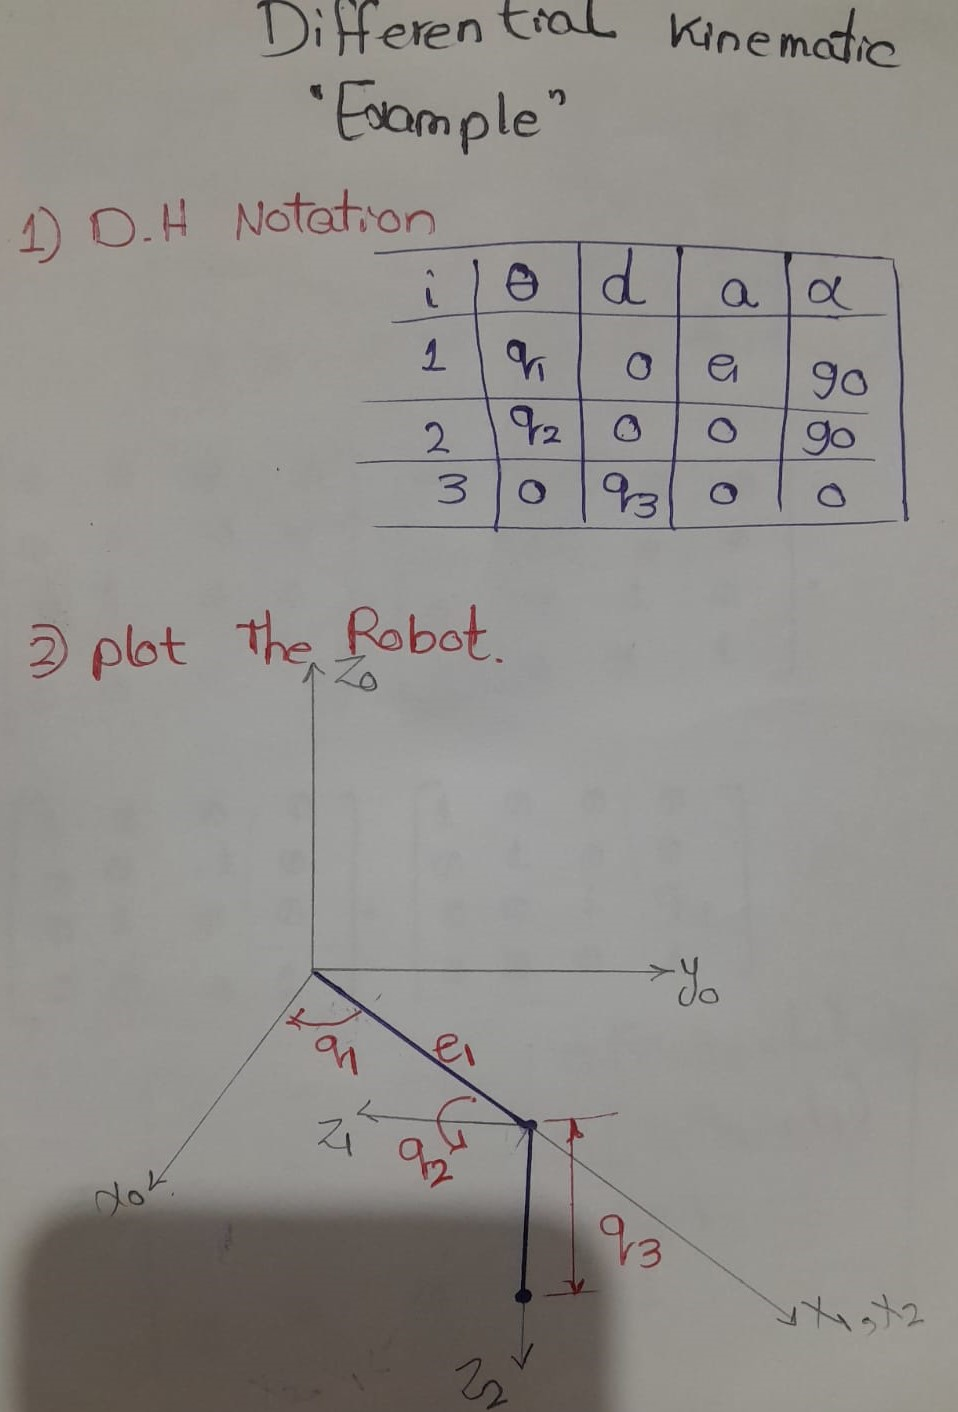 Differential Kinematic
"Example"
1) D.H Notation
i θ d a α
1 q₁ 0 e₁ 90
2 q₂ 0 0 90
3 0 q₃ 0 0
2) plot The Robot.
Z₀
y₀
q₁
e₁
Z₁
q₂
x₀
q₃
x₁, x₂
Z₂